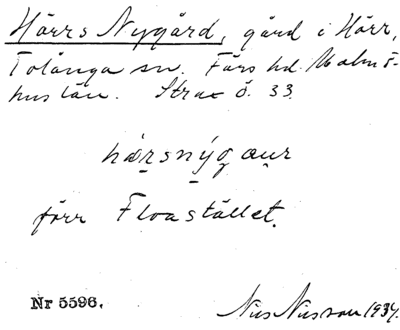 Hörrs Nygård, gård i Hörr,
Tolånga sn. Färs hd. Malmö-
hus län. Strax ö. 33.
hœ́rsnýgœur
förr Floastället.
Nr 5596.
Nils Nilsson 1934.